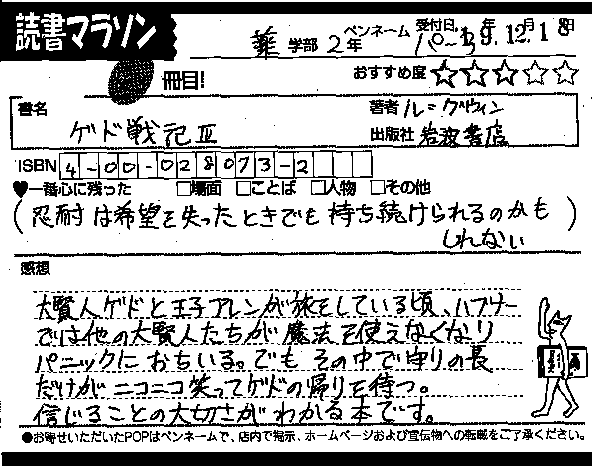 読書マラソン
薬 学部 2年
ペンネーム
受付日. 年12月18日
冊目!
おすすめ度 ★★★☆☆
書名
ゲド戦記Ⅲ
著者 ル=グウィン
出版社 岩波書店
ISBN 4-00-028073-2
♥一番心に残った □場面 □ことば □人物 □その他
(忍耐は希望を失ったときでも持ち続けられるのかも
しれない)
感想
大賢人ゲドと王子アレンが旅をしている頃、ハブナー
では他の大賢人たちが魔法を使えなくなり
パニックにおちいる。でもその中で守りの長
だけがニコニコ笑ってゲドの帰りを待つ。
信じることの大切さがわかる本です。
●お寄せいただいたPOPはペンネームで、店内で掲示、ホームページおよび宣伝物への転載をご了承ください。